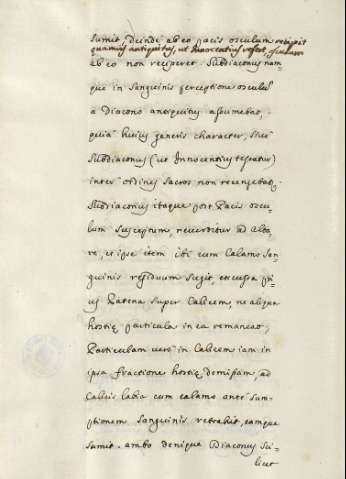 sumit, deinde ab eo pacis osculum recipit
quamuis antiquitus, ut Innocentius refert, osculum
ab eo non reciperet. Subdiaconus nam-
que in Sanguinis perceptione osculũ
à Diacono antiquitus assumebat,
quia huius generis character, siue
Subdiaconus (ut Innocentius testatur)
inter ordines sacros non recensebat.
Subdiaconus itaque post Pacis oscu-
lum susceptum, reuertitur ad Alta-
re, et ipse item ibi cum Calamo San-
guinis residuum sugit, excussa
us Patena super Calicem, ne aliqua
hostię particula in ea remaneat;
Particulam uero in Calicem iam in
ipsa fractione hostię demissam, ad
Calicis labia cum calamo ante sum-
ptionem Sanguinis retrahit, eamque
sumit. ambo denique Diaconus sci-
licet